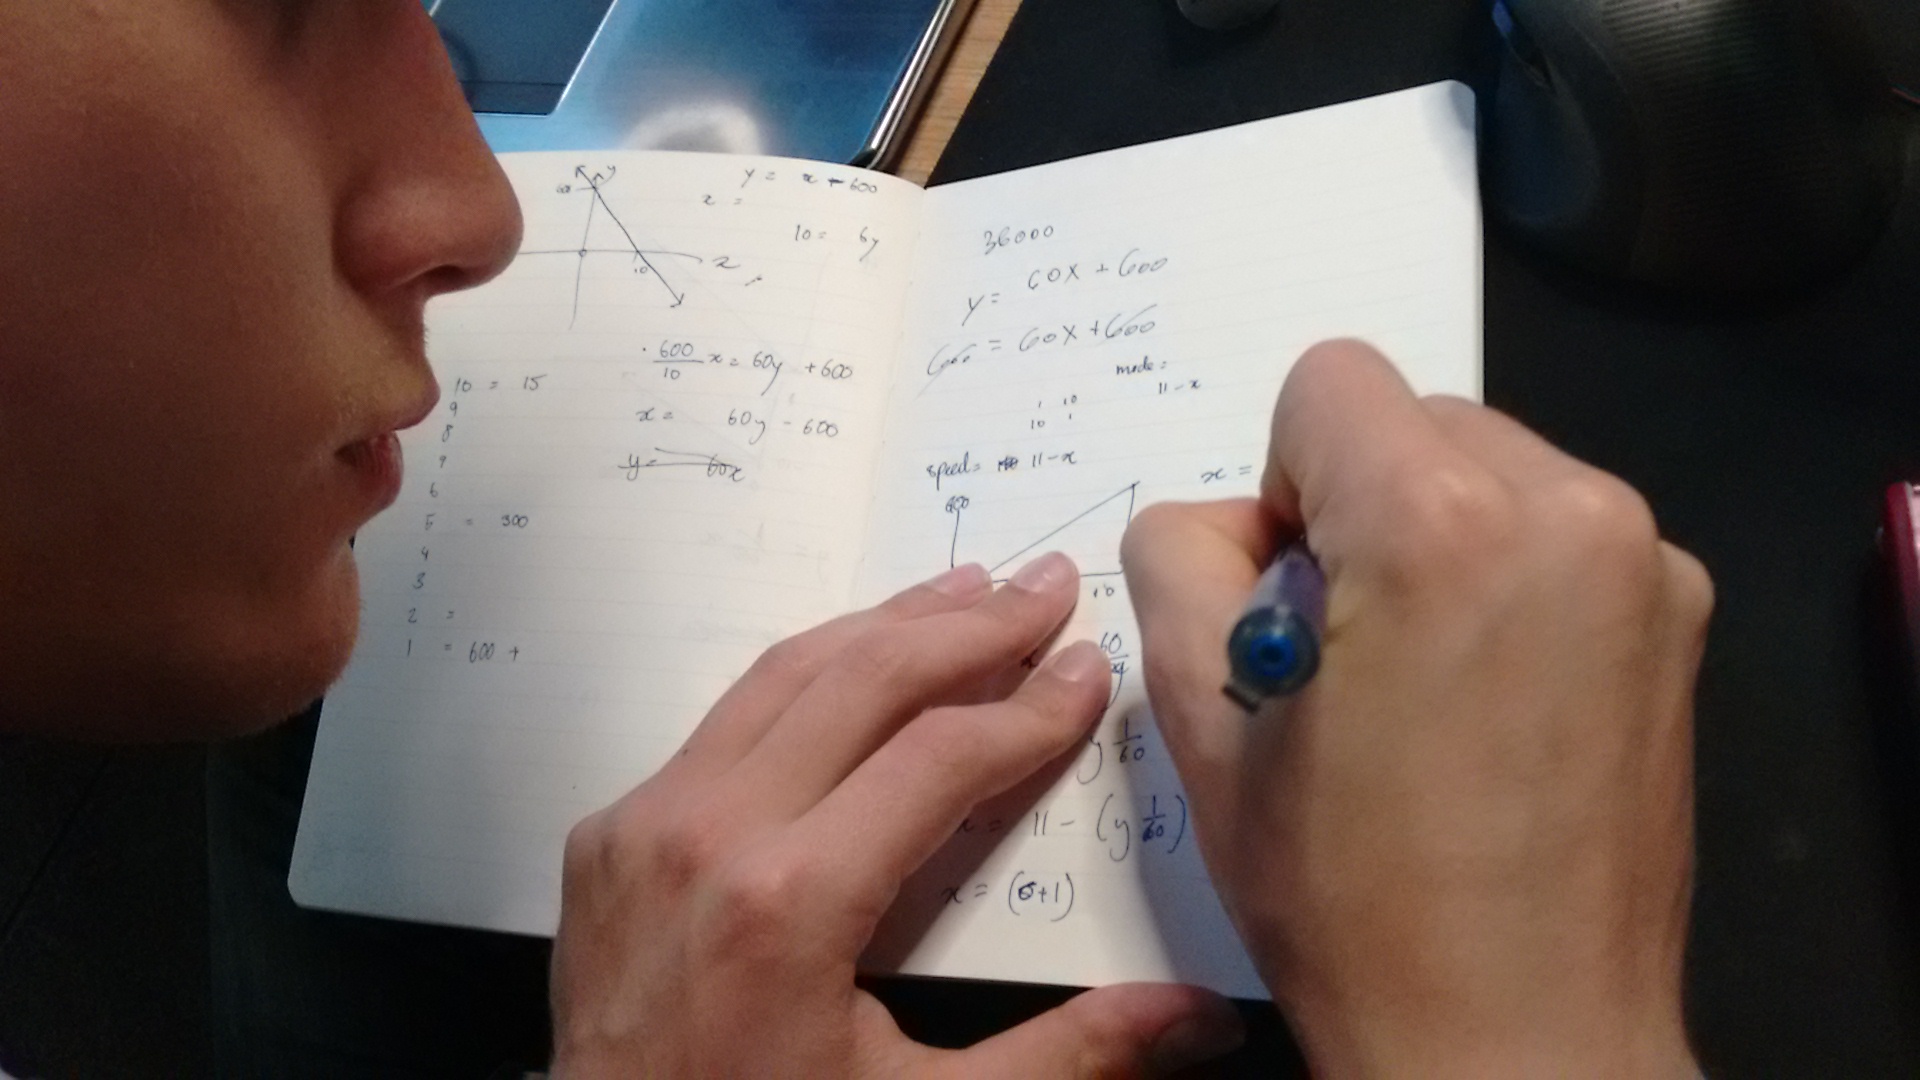 y
x
10
y = x + 600
x =
10 = 6y
600/10 x = 60y + 600
x = 60y - 600
y = 60x
10 = 15
9
8
7
6
5 = 300
4
3
2 =
1 = 600 +
36000
y = 60x + 600
600 = 60x + 600
mode =
11 - x
1 10
10 1
speed = 11 - x
600
10
x =
60
y 1/60
x = 11 - (y 1/60)
x = (5+1)